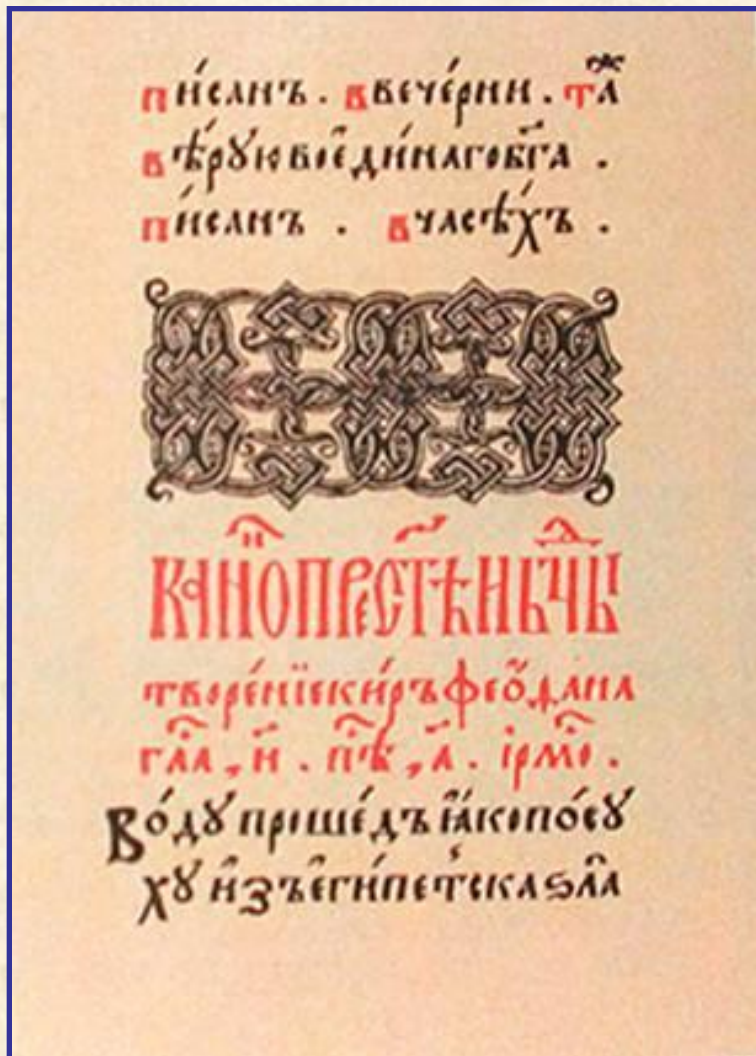 пи́санъ . ввече́рни .
вѣ́рꙋювоє҆ди́нагобг҃а .
пи́санъ . вчасѣ́хъ .
каноⷩ҇прест҃ѣиб҃цы
творе́нїеки́ръфео҆фана
гла҃ , и҃ . пѣ҃ , а҃ . їрмо҃ .
Во́дꙋпроше́дъꙗ҆́копо́сꙋ
хꙋ и҆зъе҆ги́петскаѕла҃